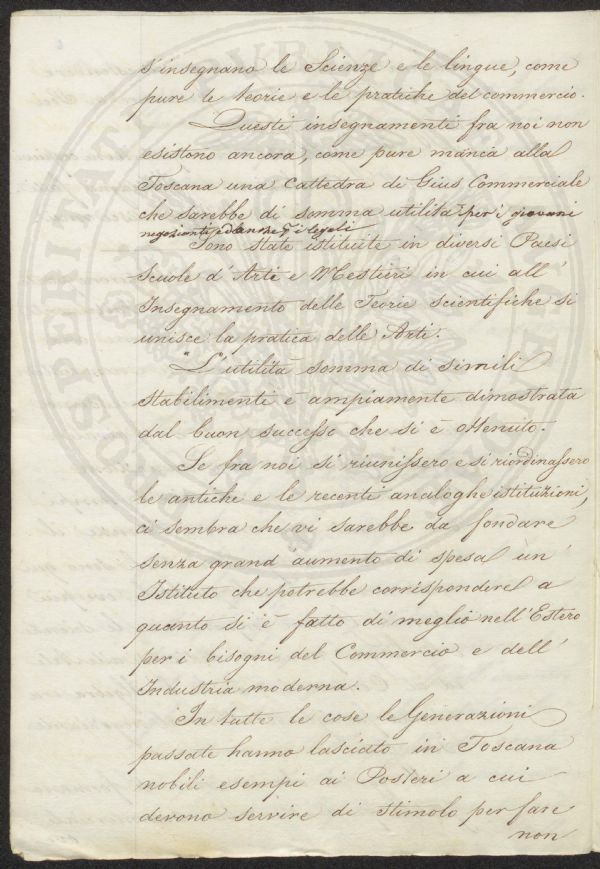 s'insegnano le Scienze e le lingue, come
pure le teorie e le pratiche del commercio.
Questi insegnamenti fra noi non
esistono ancora, come pure manca alla
Toscana una Cattedra di Gius Commerciale
che sarebbe di somma utilità per i giovani
negozianti, ed anche p i legali
Sono state istituite in diversi Paesi
Scuole d'Arte e Mestieri in cui all'
Insegnamento delle Teorie scientifiche si
unisce la pratica delle Arti.
L'utilità somma di simili
Stabilimenti è ampiamente dimostrata
dal buon successo che si è ottenuto.
Se fra noi si riunissero e si riordinassero
le antiche e le recenti analoghe istituzioni,
ci sembra che vi sarebbe da fondare
senza grand'aumento di spesa un'
Istituto che potrebbe corrispondere a
quanto si è fatto di meglio nell'Estero
per i bisogni del Commercio e dell'
Industria moderna.
In tutte le cose le Generazioni
passate hanno lasciato in Toscana
nobili esempi ai Posteri a cui
devono servire di stimolo per fare
non